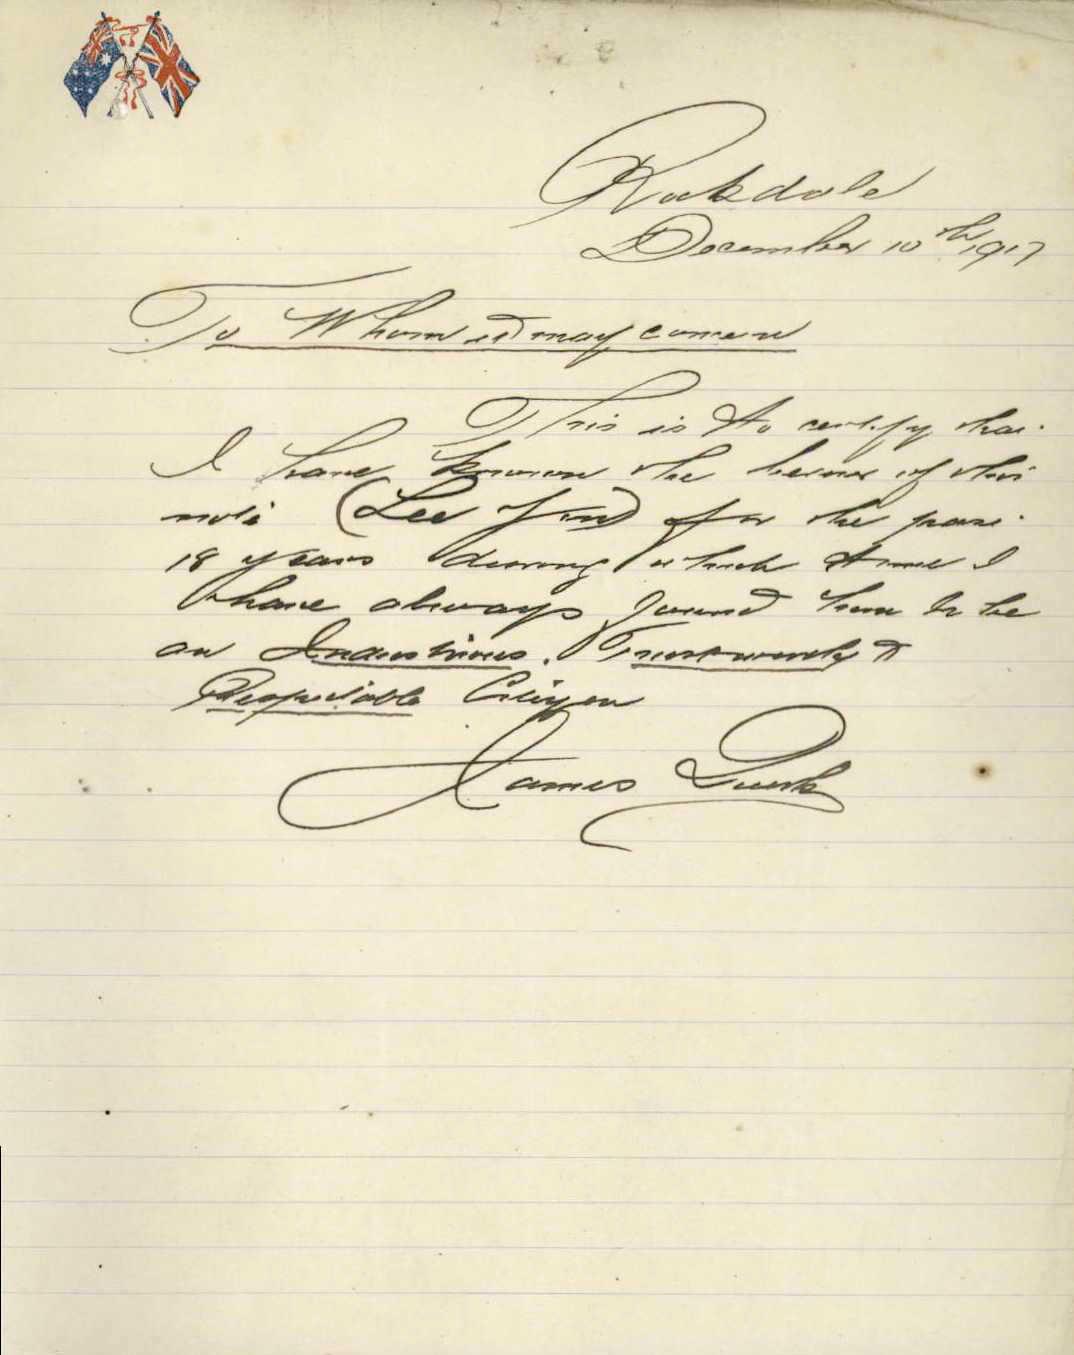 Rockdale
December 10th 1917
To Whom it may concern
This is to certify that
I have known the bearer of this
note (Lee Yin) for the past
18 years during which time I
have always found him to be
an Industrious, Trustworthy &
Respectable Citizen
James